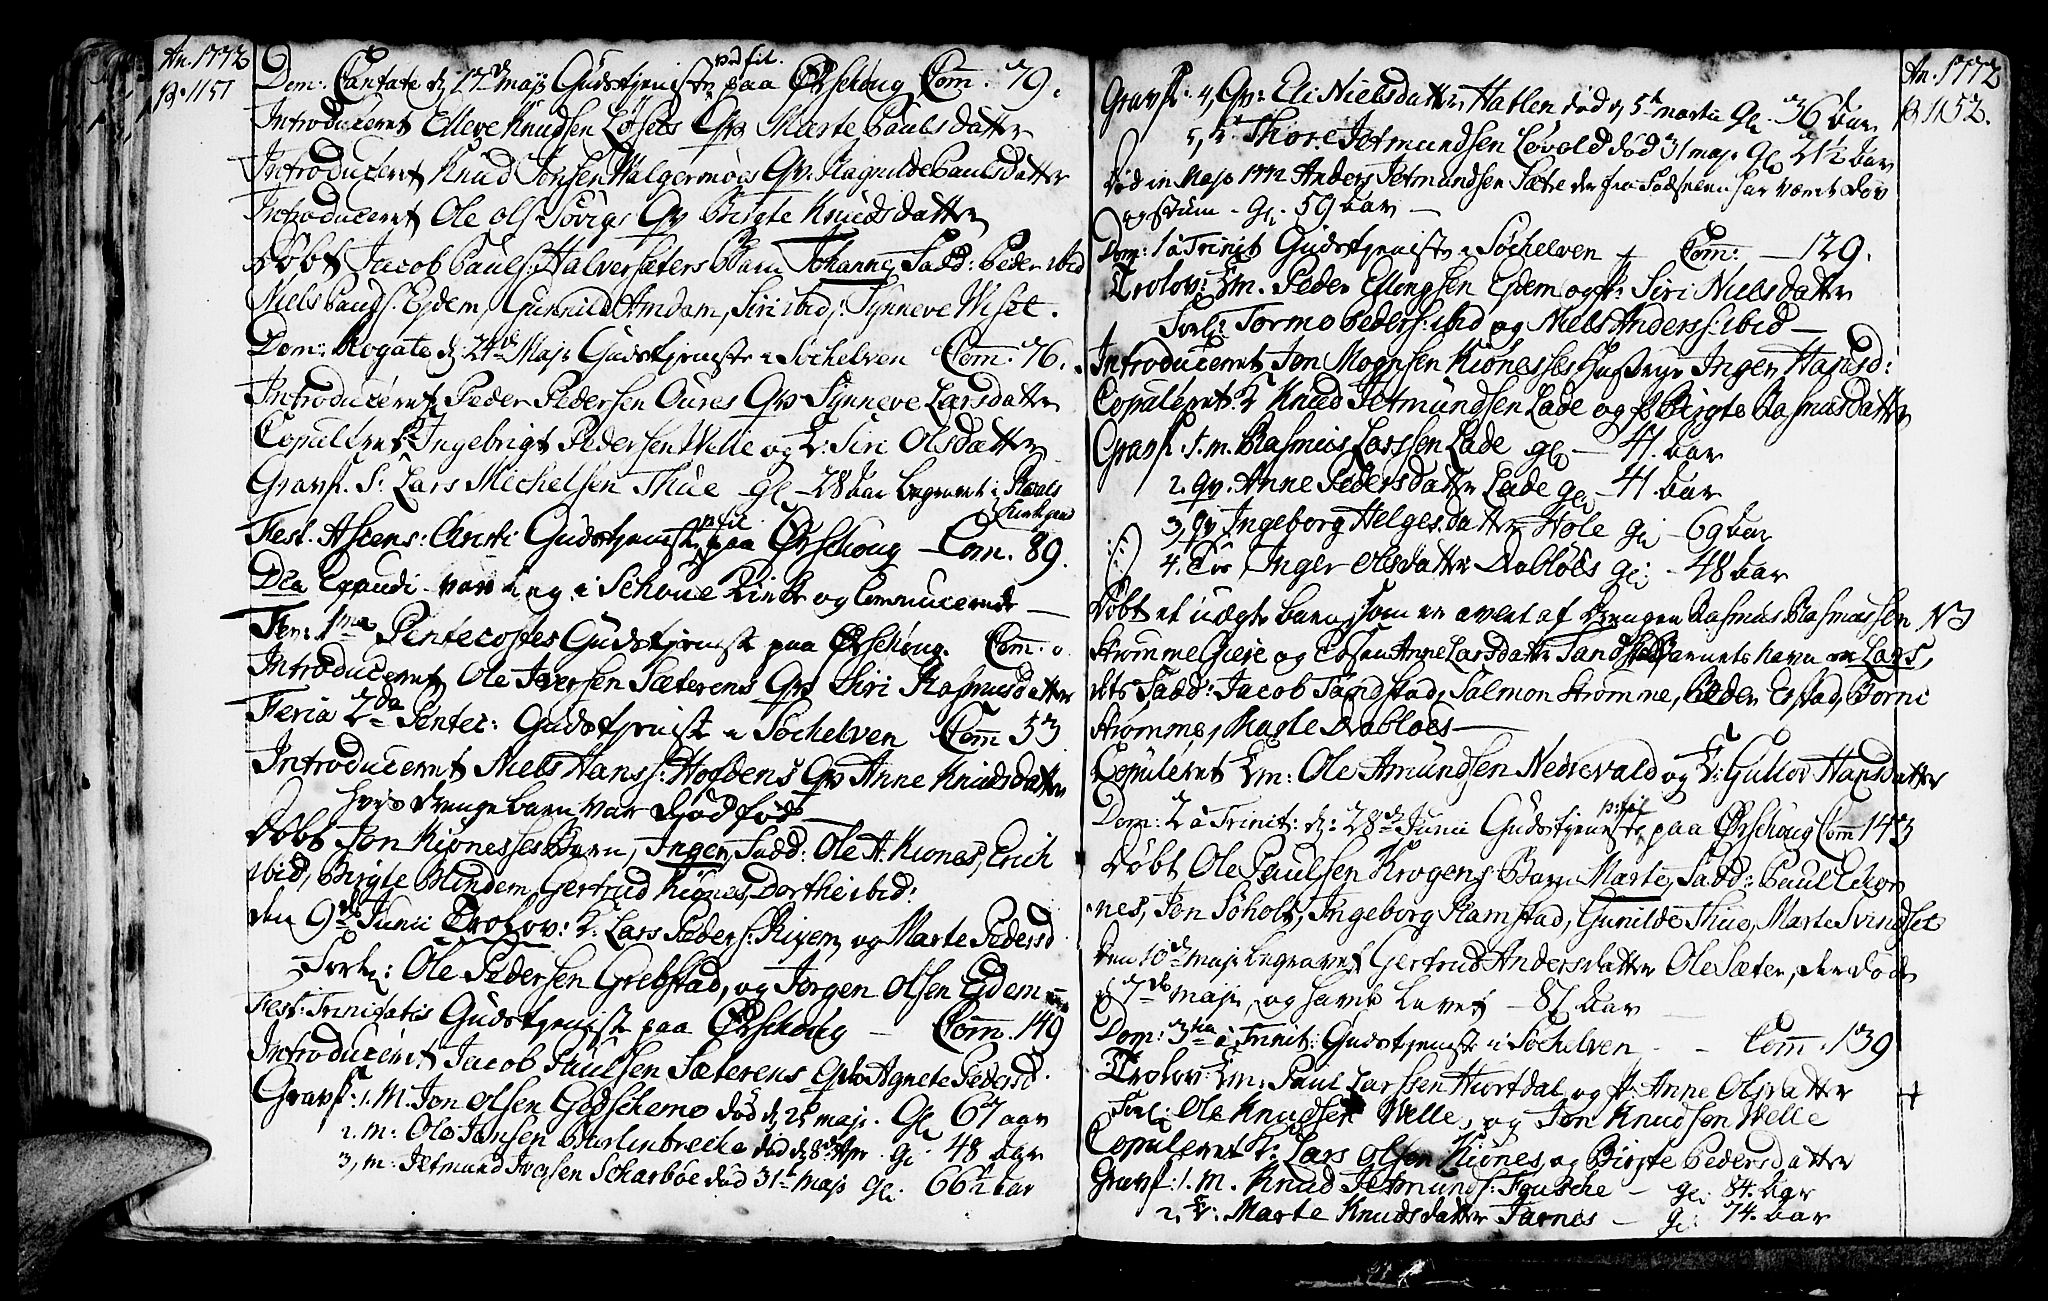 An. 1772
p. 1151
Dom: Cantate d. 17de maji Gudstjeniste paa Ørschoug Com. 79.
Introduceret Elleve Knudsen Løsets Qv Marte Paulsdatter
Introduceret Knud Jonsen Walgermoes Qv. Ragnilde Paulsdatter
Introduceret Ole Ols Søvigs Qv Birgte Knudsdatter
Døbt Jacob Pauls: Halversæters Barn Johanne, Fadd: Peder ibid
Niels Pauls: Ejdem, Gunnild Amdam, Siri ibid, Synneve Wiset.
Dom: Rogate d. 24de Maji Gudstjeniste i Søchelven Com. 76.
Introduceret Peder Pedersen Oures Qv Synneve Larsdatter
Copulleret Ingebrigt Pedersen Welle og Siri Olsdatter
Gravf. S. Lars Michelsen Thue gl. 28 aar begravet i
Kirkgaard
Fest. Ascens: Christi Gudstjeniste paa Ørschoug Com. 89.
Dca Exaudi var ieg i Schoue Kirke og Communicerede
Fer: 1ma Pentecostes Gudstjenist paa Ørschoug. Com: 0.
Introduceret Ole Iversen Sæterens Qv Siri Rasmusdatter
Feria 2da Pentec: Gudstjeniste i Søchelven Com 53
Introduceret Niels Hans: Hofdens Qv Anne Knudsdatter
hvis drengebarn var dødfød
Døbt Jon Kionesses Barn, Inger, Fadd: Ole A. Kiones, Erich
ibid, Birgte Blindem, Gertrud Kiones, Dorthe ibid:
den 9de Junii Trolov: K: Lars Peders: Rigem og Marte Pedersd
Forl: Ole Pedersen Grebstad, og Jørgen Olsen Ejdem
Fest: Trinitatis Gudstjeniste paa Ørschoug Com. 149
Introduceret Jacob Paulsen Sæterens Qv Agnete Pedersd.
Gravf: 1. M. Jon Olsen Gjeschemo død d. 25 maji. gl 67 aar
2. m: Ole Jonsen død d. 8de gl. 48 aar
3, m: Jetmund Iversen Scharboe død 31t Maji gl. 66½ aar
An. 1772
p. 1152.
Gravf: 4, Qv: Eli Nielsdatter Hatlen død d. 5t martii gl. 36 aar
5, Thore Jetmundsen Løvold død 31 maji gl 21½ aar
Død in Maji 1772 Anders Jetmundsen Sætre der fra Fødselen har været døv
og stum. gl. 59 aar
Dom: 1 à Trinit Gudstjeniste i Søchelven Com: 129.
Trolov: Em. Peder Ellingsen Ejdem og P: Siri Nielsdatter
Forl: Tormo Peders: ibid og Niels Anders: ibid
Introduceret Jon Mogensen Kionesses Hustrue Inger Hansd:
Copuleret K Knud Jetmundsen Lade og P Birgte Rasmusdatter
Gravf. 1. m. Rasmus Larssen Lade gl 41. aar
2. qv. Anne Pedersdatter Lade gl 41 aar
3, qv Ingeborg Helgesdatter Hole gl 69 aar
4. Inger Olsdatter Dabløes gl. 48 aar
Døbt et uægte barn, som er avlet af drengen Rasmus Rasmussen
StrømmeGieie og Anne Larsdatter Tandstad Barnets Navn er Lars,
dets Fadd: Jacob Tandstad, Salmon Strømme, Peder Erstad, Børni
Strømme, Marte Dabloes
Copuleret Em: Ole Amundsen Nedrevald og Gullov Hansdatter
Dom: 2 à Trinit: d: 28de Junii Gudstjeneste paa Ørschoug Com 143
Døbt Ole Paulsen Krogens Barn Marte, Fadd: Paul
nes, Jon Søholt, Ingeborg Ramstad, Gunilde Thue, Marte Svindset
Den 10de maji begravet Gertrud Andersdatter Ole Sæter, der døde
d 7de maji, og havde levet 87 aar
Dom: 3tia à Trinit: Gudstjeniste i Søchelven Com. 139
Trolov: Em: Paul Larssen Hiortdal og P: Anne Olsdatter
Forl: Ole Knudsen Velle, og Jon Knudsen Welle
Copuleret K: Lars Olsen Kiones, og Birgte Pedersdatter
Gravf: 1. m. Knud Jetmunds: gl: 84. aar
2, Marte Knudsdatter Tarnes gl: 74. aar